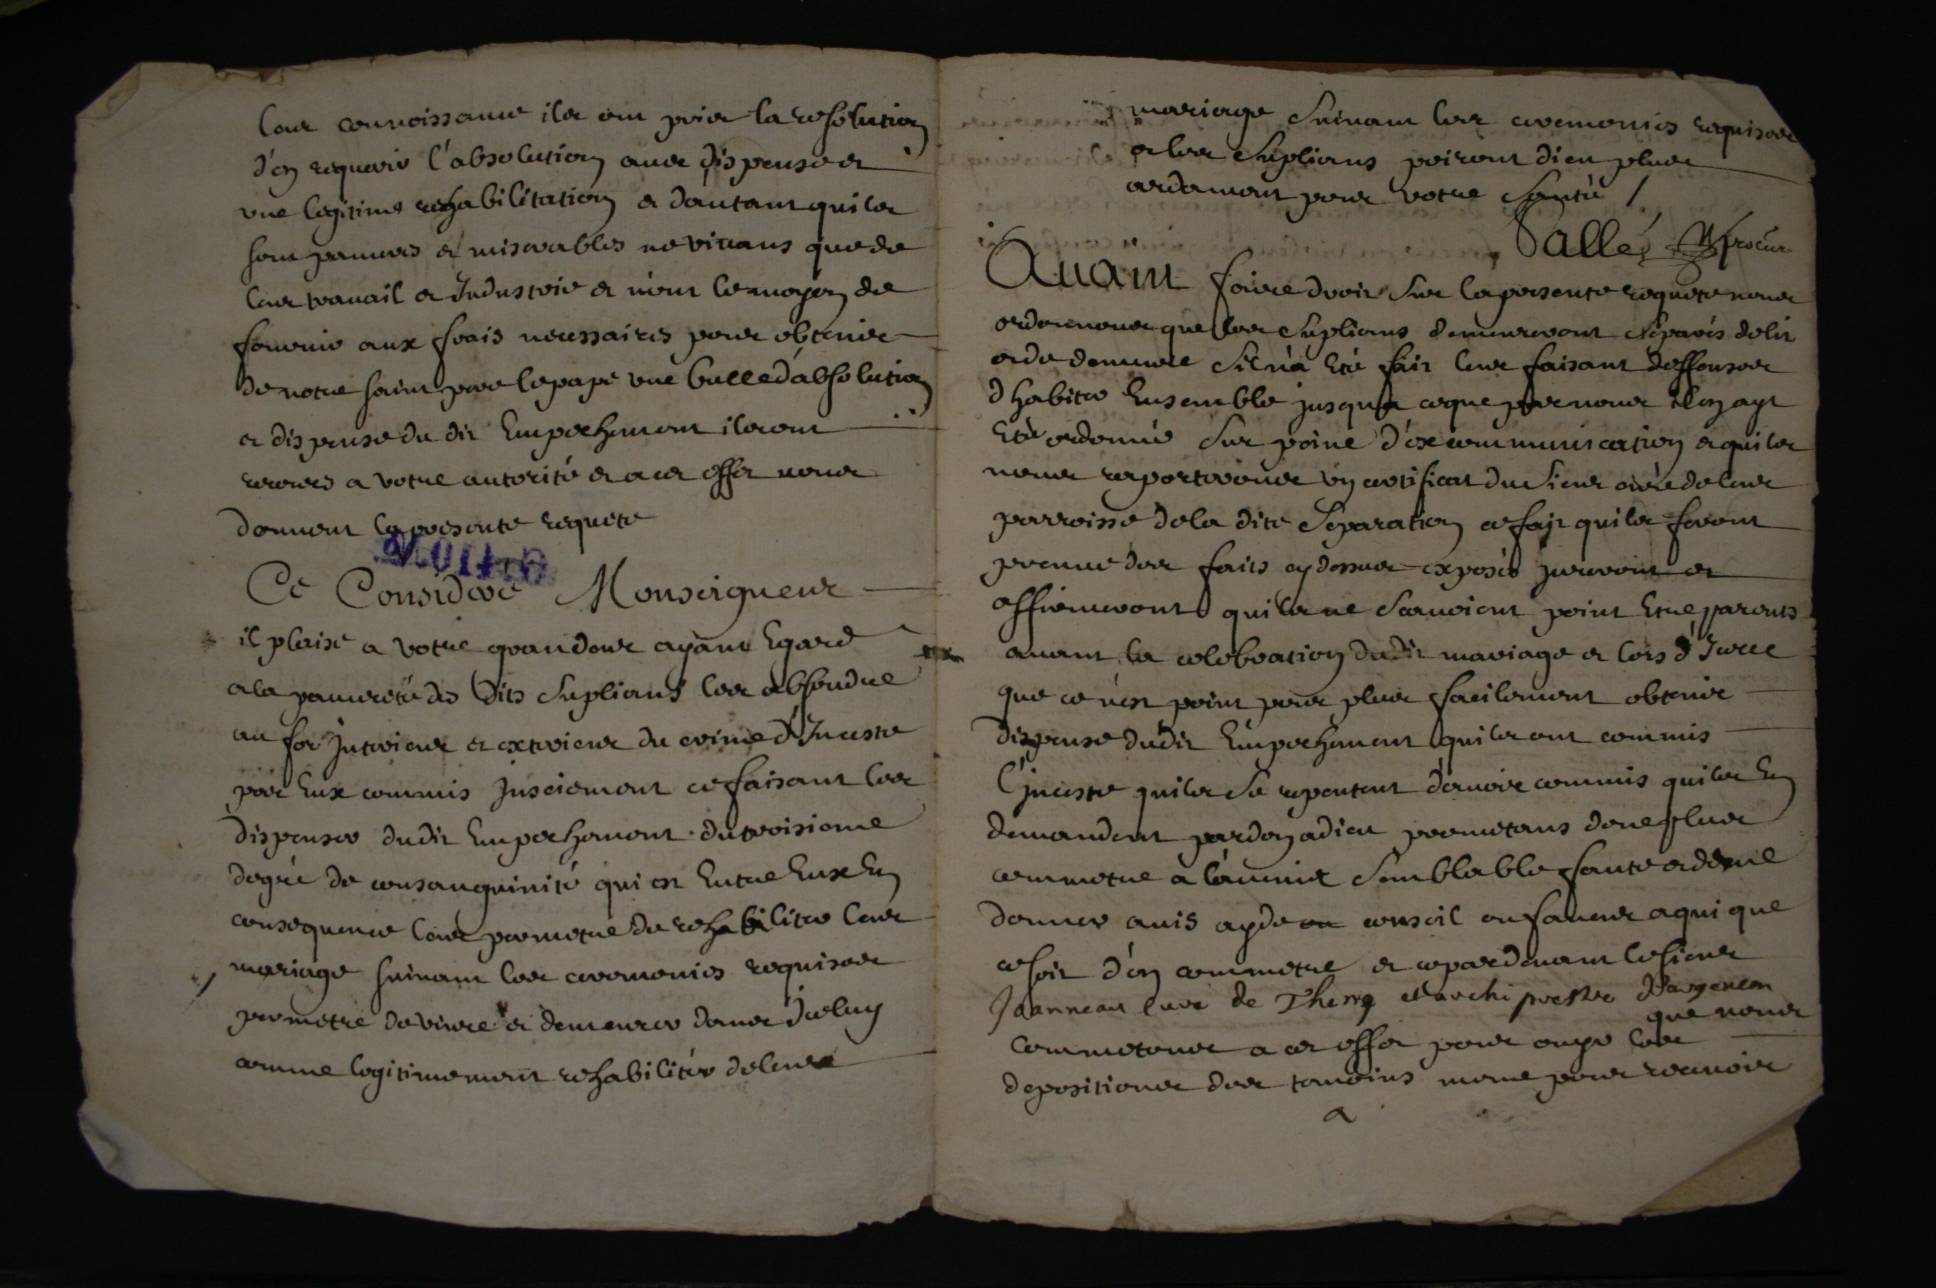 leur connoissance ils ont prier la resolution
d'en requerir l'absolution avec dispense et
une legitime rehabilitation et dautant quils
sont pauvres et miserables ne vivans que de
leur travail et Industrie et n'ont le moyen de
fournir aux frais necessaires pour obtenir
de notre saint pere le pape une bulle d'absolution
et dispense du dit Empechement ils ont
recours a votre autorité et a cet effet vous
donnent la presente requete
Ce Consideré Monseigneur
il plaise a votre grandeur ayant Egard
a la pauvreté des dits supliants les absoudre
au for Interieur et exterieur du crime d'Inceste
par Eux commis Insciement ce faisant les
dispenser dudit Empechement du troisieme
degré de consanguinité qui est Entre Eux En
consequence leur permetre de rehabiliter leur
mariage suivant les ceremonies requises
permetre de vivre et demeurer dans Iceluy
comme legitimement rehabilités de leur
mariage suivant les ceremonies requises
et les supliants priront dieu plus
ardament pour votre santé /
Sallé procur
Avant faire droit sur la presente requete nous
ordonnons que les supliants demeureront séparés de lit
et de demeure sil n'a Eté fait leur faisant deffenses
d'habiter Ensemble jusqu'a ce que par nous il en ayt
Eté ordonné sur peine d'excommunication et quils
nous raporterons un certificat du sieur curé de leur
parroisse de la dite séparation ce fait quils feront
preuve des faits cy dessus exposés jureront et
affirmeront quils ne scavoient point Etre parents
avant la celebration dudit mariage et lors d'Icelle
que ce n'est point pour plus facilement obtenir
dispense dudit Empechement quils ont commis
l'Inceste quils se repentent d'avoir commis quils En
demandent pardon a dieu prometans de ne plus
commetre a l'avenir semblable faute et de ne
donner avis ayde ou conseil ou faveur a qui que
ce soit d'en commetre et ce pardevant le sieur
Jeanneau curé de Thene et archiprestre d'argenton
que nous
commetons a cet effet pour ouyr les
depositions des temoins meme pour recevoir
a